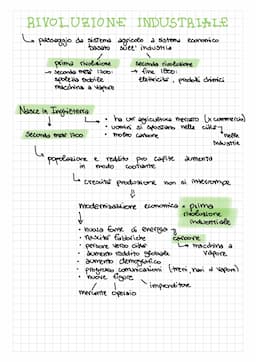 RIVOLUZIONE INDUSTRIALE
passaggio da sistema agricolo a sistema economico
basato sull' industria
prima rivoluzione
→ seconda metà 1700:
spoletta mobile
macchina a vapore
seconda rivoluzione
→ fine 1800:
elettricità, prodotti chimici
Nasce in Inghilterra
seconda metà 1700
• ha un' agricoltura mercato (x commercio)
• uomini si spostano nelle città
• molto carbone
nelle
industrie
popolazione e reddito pro capite aumenta
in modo costante
crescita produzione non si interrompe
modernizzazione economica = prima
rivoluzione
industriale
• nuova fonte di energia → carbone
• nascita fabbriche
macchina a
vapore
• persone verso città
• aumento reddito globale
• aumento demografico
• progresso comunicazioni (treni, navi a vapore)
• nuove figure
imprenditore
operaio